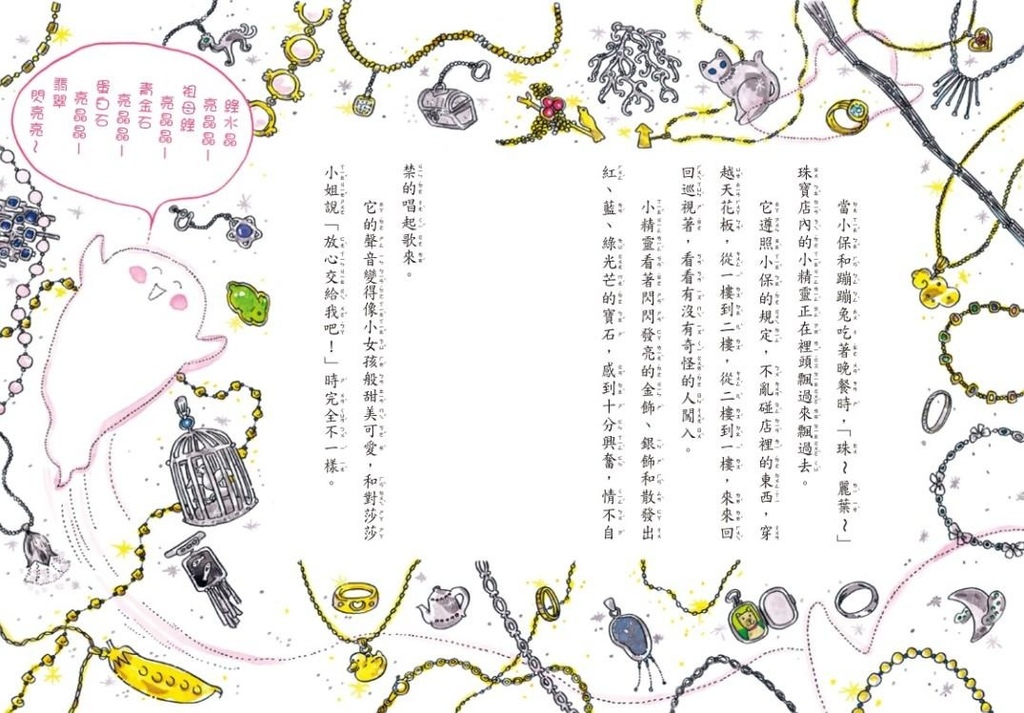 當小保和蹦蹦兔吃著晚餐時，「珠～麗葉～」
珠寶店內的小精靈正在裡頭飄過來飄過去。
它遵照小保的規定，不亂碰店裡的東西，穿
越天花板，從一樓到二樓，從二樓到一樓，來來回
回巡視著，看看有沒有奇怪的人闖入。
小精靈看著閃閃發亮的金飾、銀飾和散發出
紅、藍、綠光芒的寶石，感到十分興奮，情不自
禁的唱起歌來。
它的聲音變得像小女孩般甜美可愛，和對莎莎
小姐說「放心交給我吧！」時完全不一樣。
綠水晶
亮晶晶～
祖母綠
亮晶晶～
青金石
亮晶晶～
蛋白石
亮晶晶～
翡翠
閃亮亮～